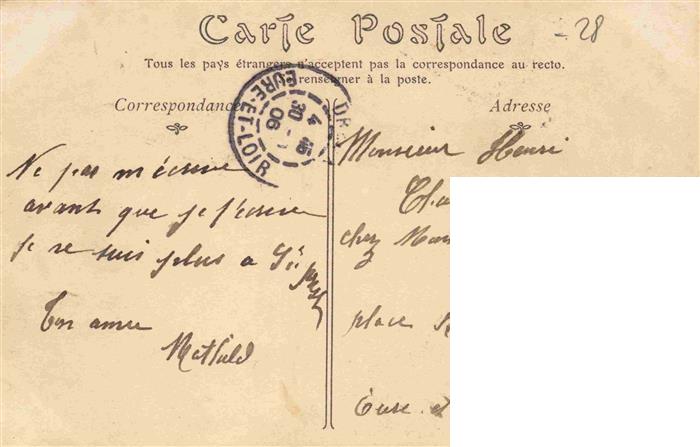 Carte Postale
- 28
Tous les pays étrangers n'acceptent pas la correspondance au recto.
renseigner à la poste.
Correspondance
Adresse
DR
EURE-ET-LOIR
4
30
06
Ne pas m'écrire
avant que je t'écrive
je ne suis plus a
Ton amie
Mathild
Monsieur Henri
chez
place
Eure et